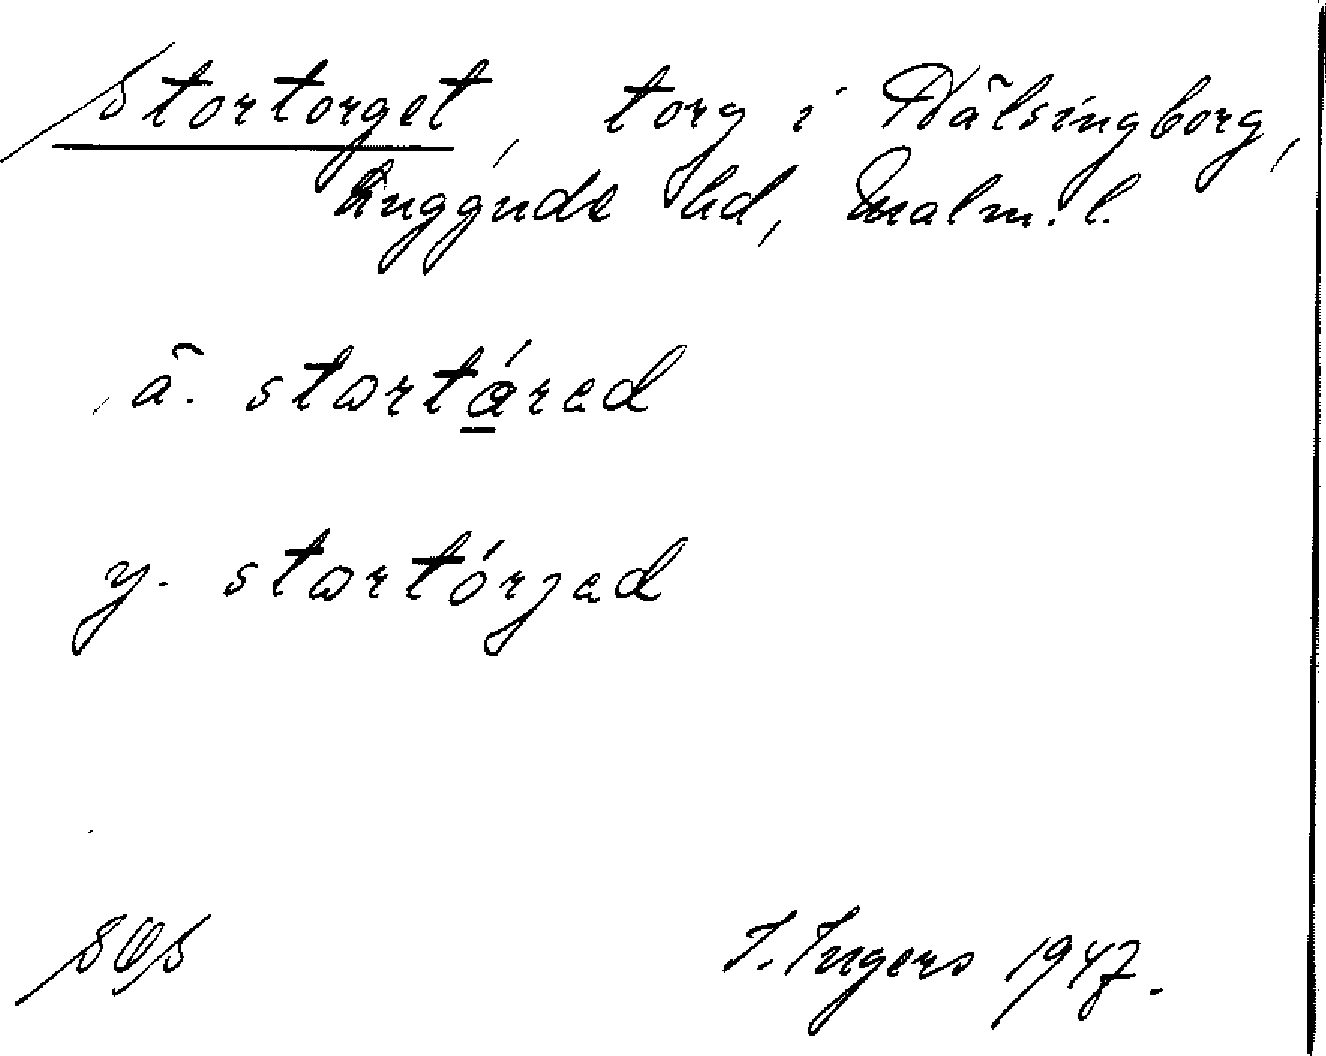 Stortorget, torg i Hälsingborg,
Luggude hd, Malm. l.
ä. stɷrtá̱rad
y. stɷrtórjad
SOS
I. Ingers 1947.